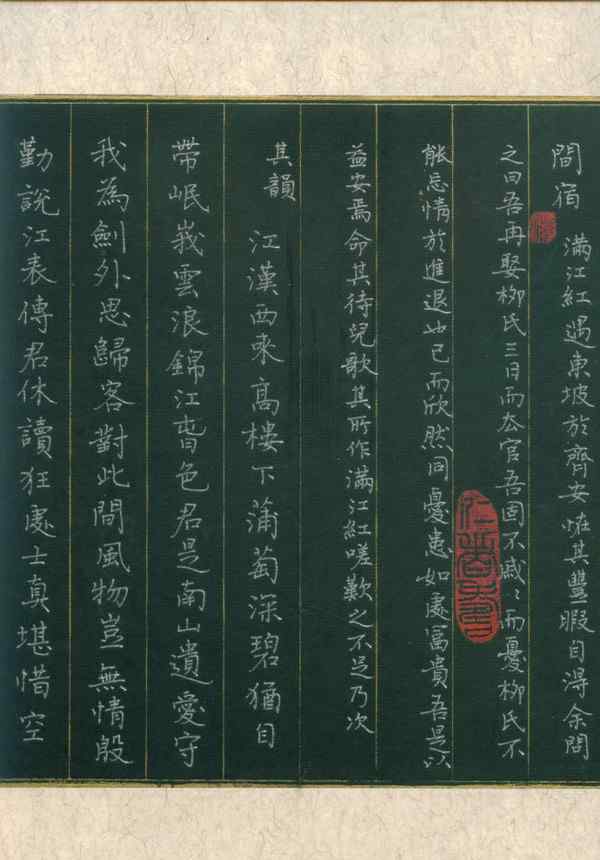 間宿 滿江紅 遇東坡於齊安怪其豐暇自得余問
之曰吾再娶柳氏三日而去官吾固不戚〻而憂柳氏不
能忘情於進退也已而欣然同憂患如處富貴吾是以
益安焉命其待兒歌其所作滿江紅嗟歎之不足乃次
其韻 江漢西來高樓下蒲萄深碧猶自
帶岷峩雲浪錦江春色君是南山遺愛守
我為劍外思歸客對此間風物豈無情殷
勤說江表傳君休讀狂處士真堪惜空